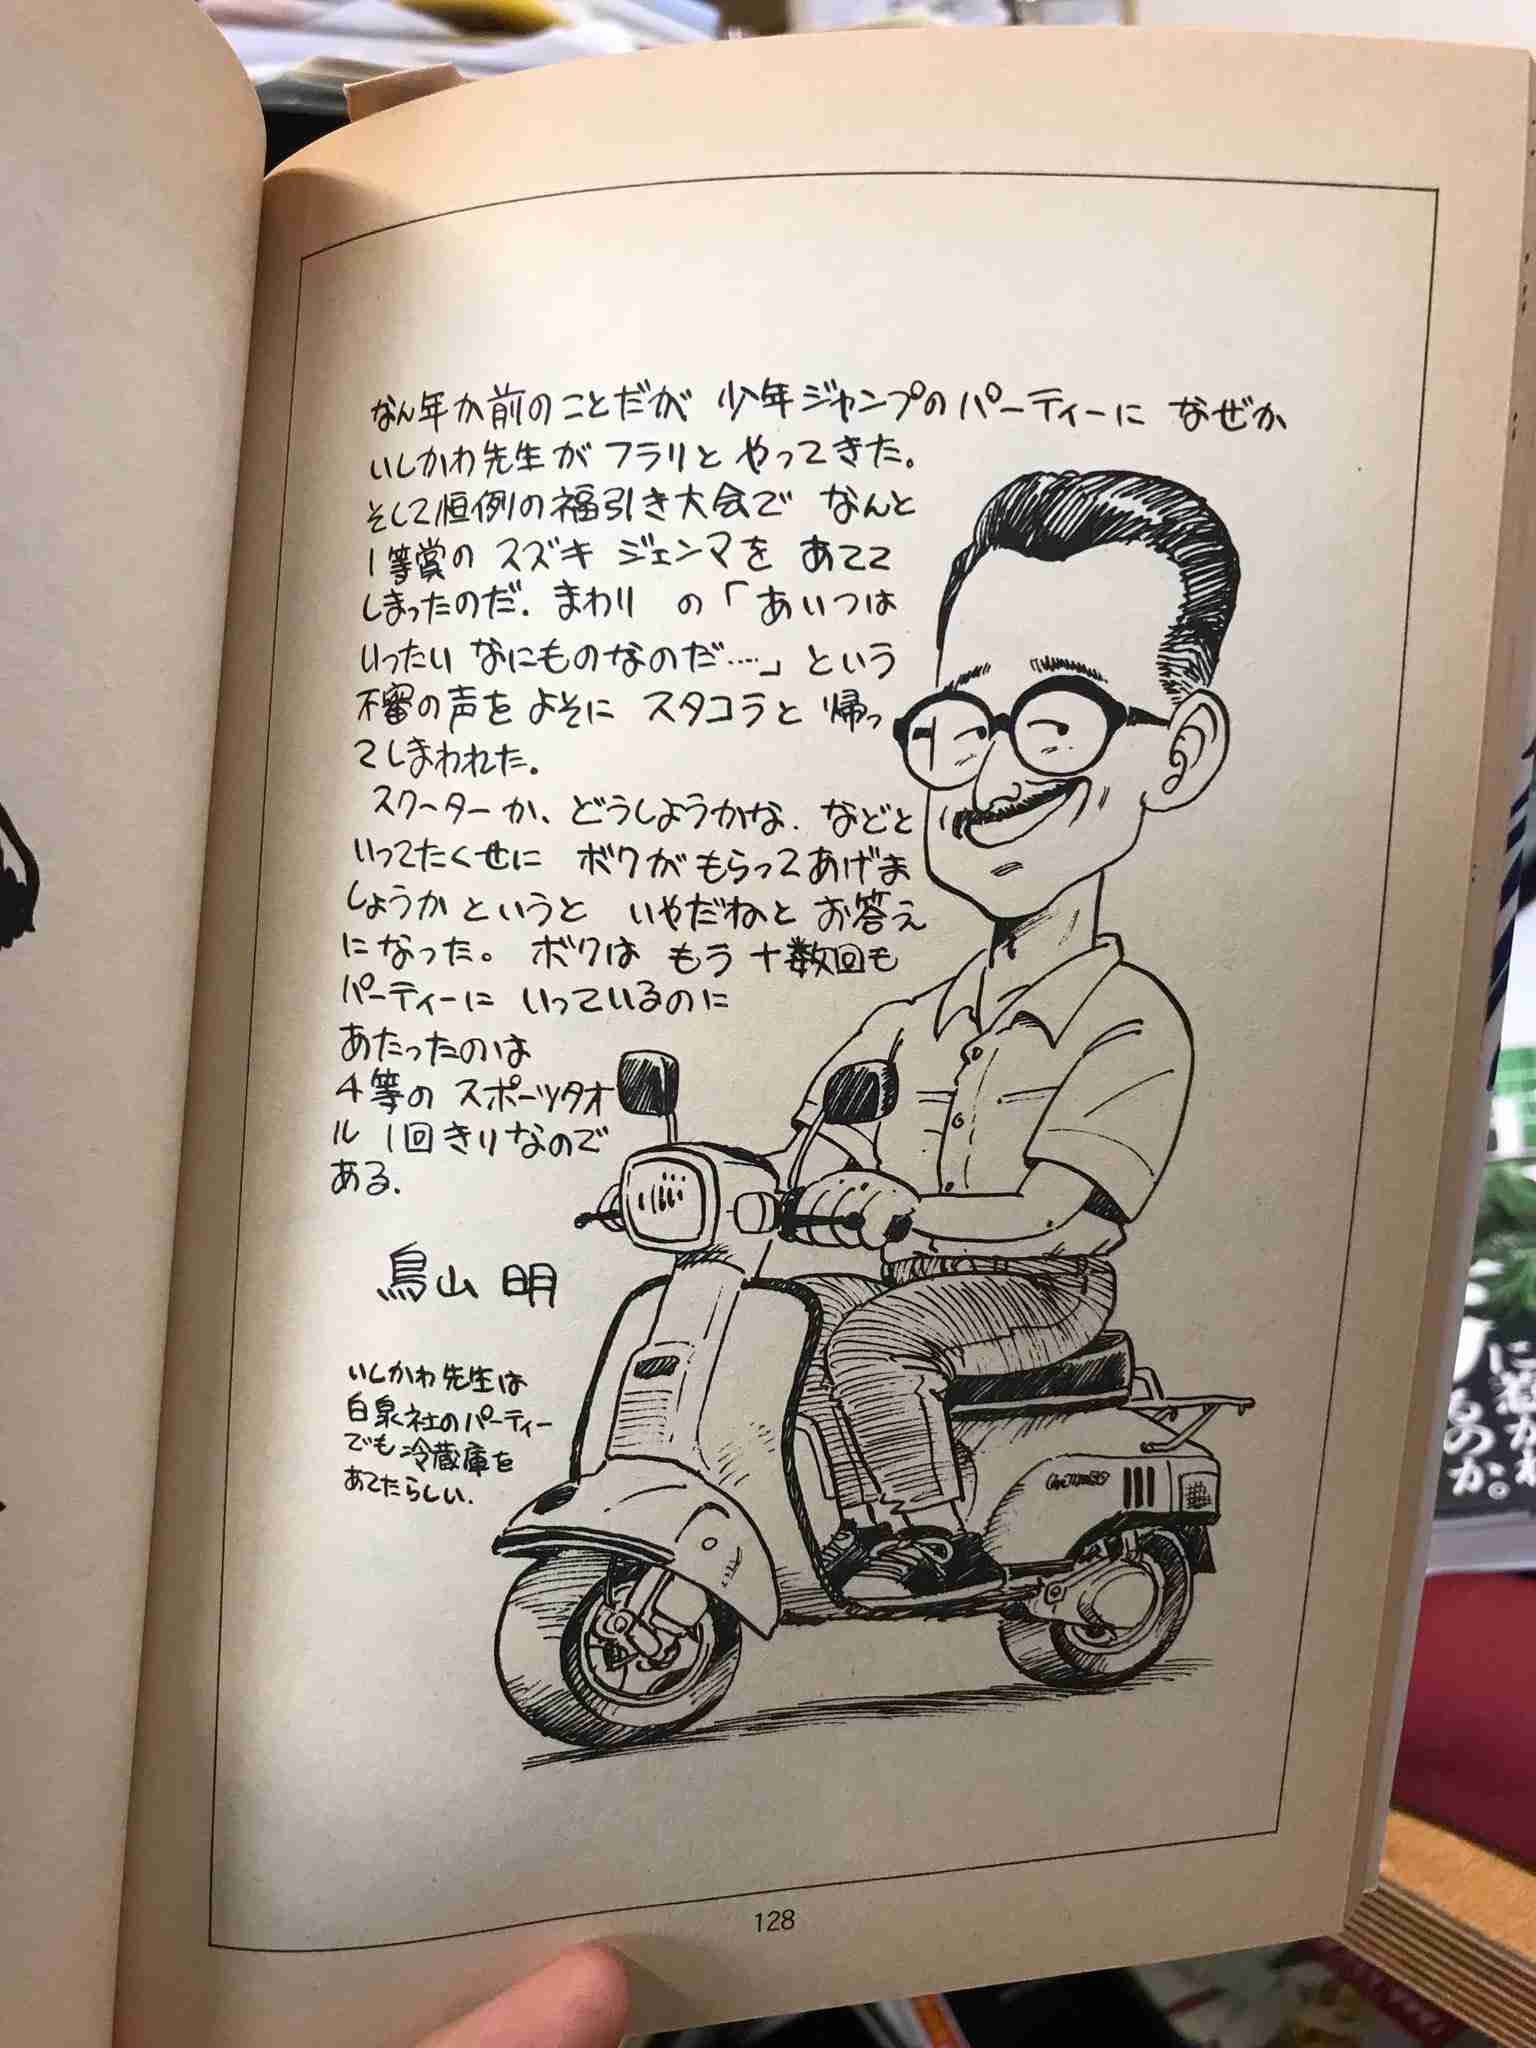 なん年か前のことだが 少年ジャンプのパーティーに なぜか
いしかわ先生が フラリと やってきた。
そして恒例の福引き大会で なんと
1等賞の スズキ ジェンマを あてて
しまったのだ. まわり の「あいつは
いったい なにものなのだ‥‥」という
不審の声を よそに スタコラと 帰っ
てしまわれた。
スクーターか、どうしようかな. などと
いってたくせに ボクがもらってあげま
しょうか というと いやだねと お答え
になった。 ボクは もう 十数回も
パーティーに いっているのに
あたったのは
4等の スポーツタオ
ル 1回きりなので
ある.
鳥山 明
いしかわ先生は
白泉社のパーティー
でも 冷蔵庫を
あてたらしい.
128